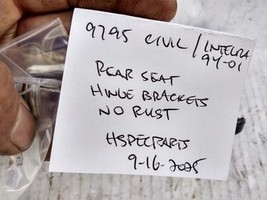 9295 CIVIC / INTEGRA
94-01
REAR SEAT
HINGE BRACKETS
NO RUST
HSPECPARTS
9-16-2025